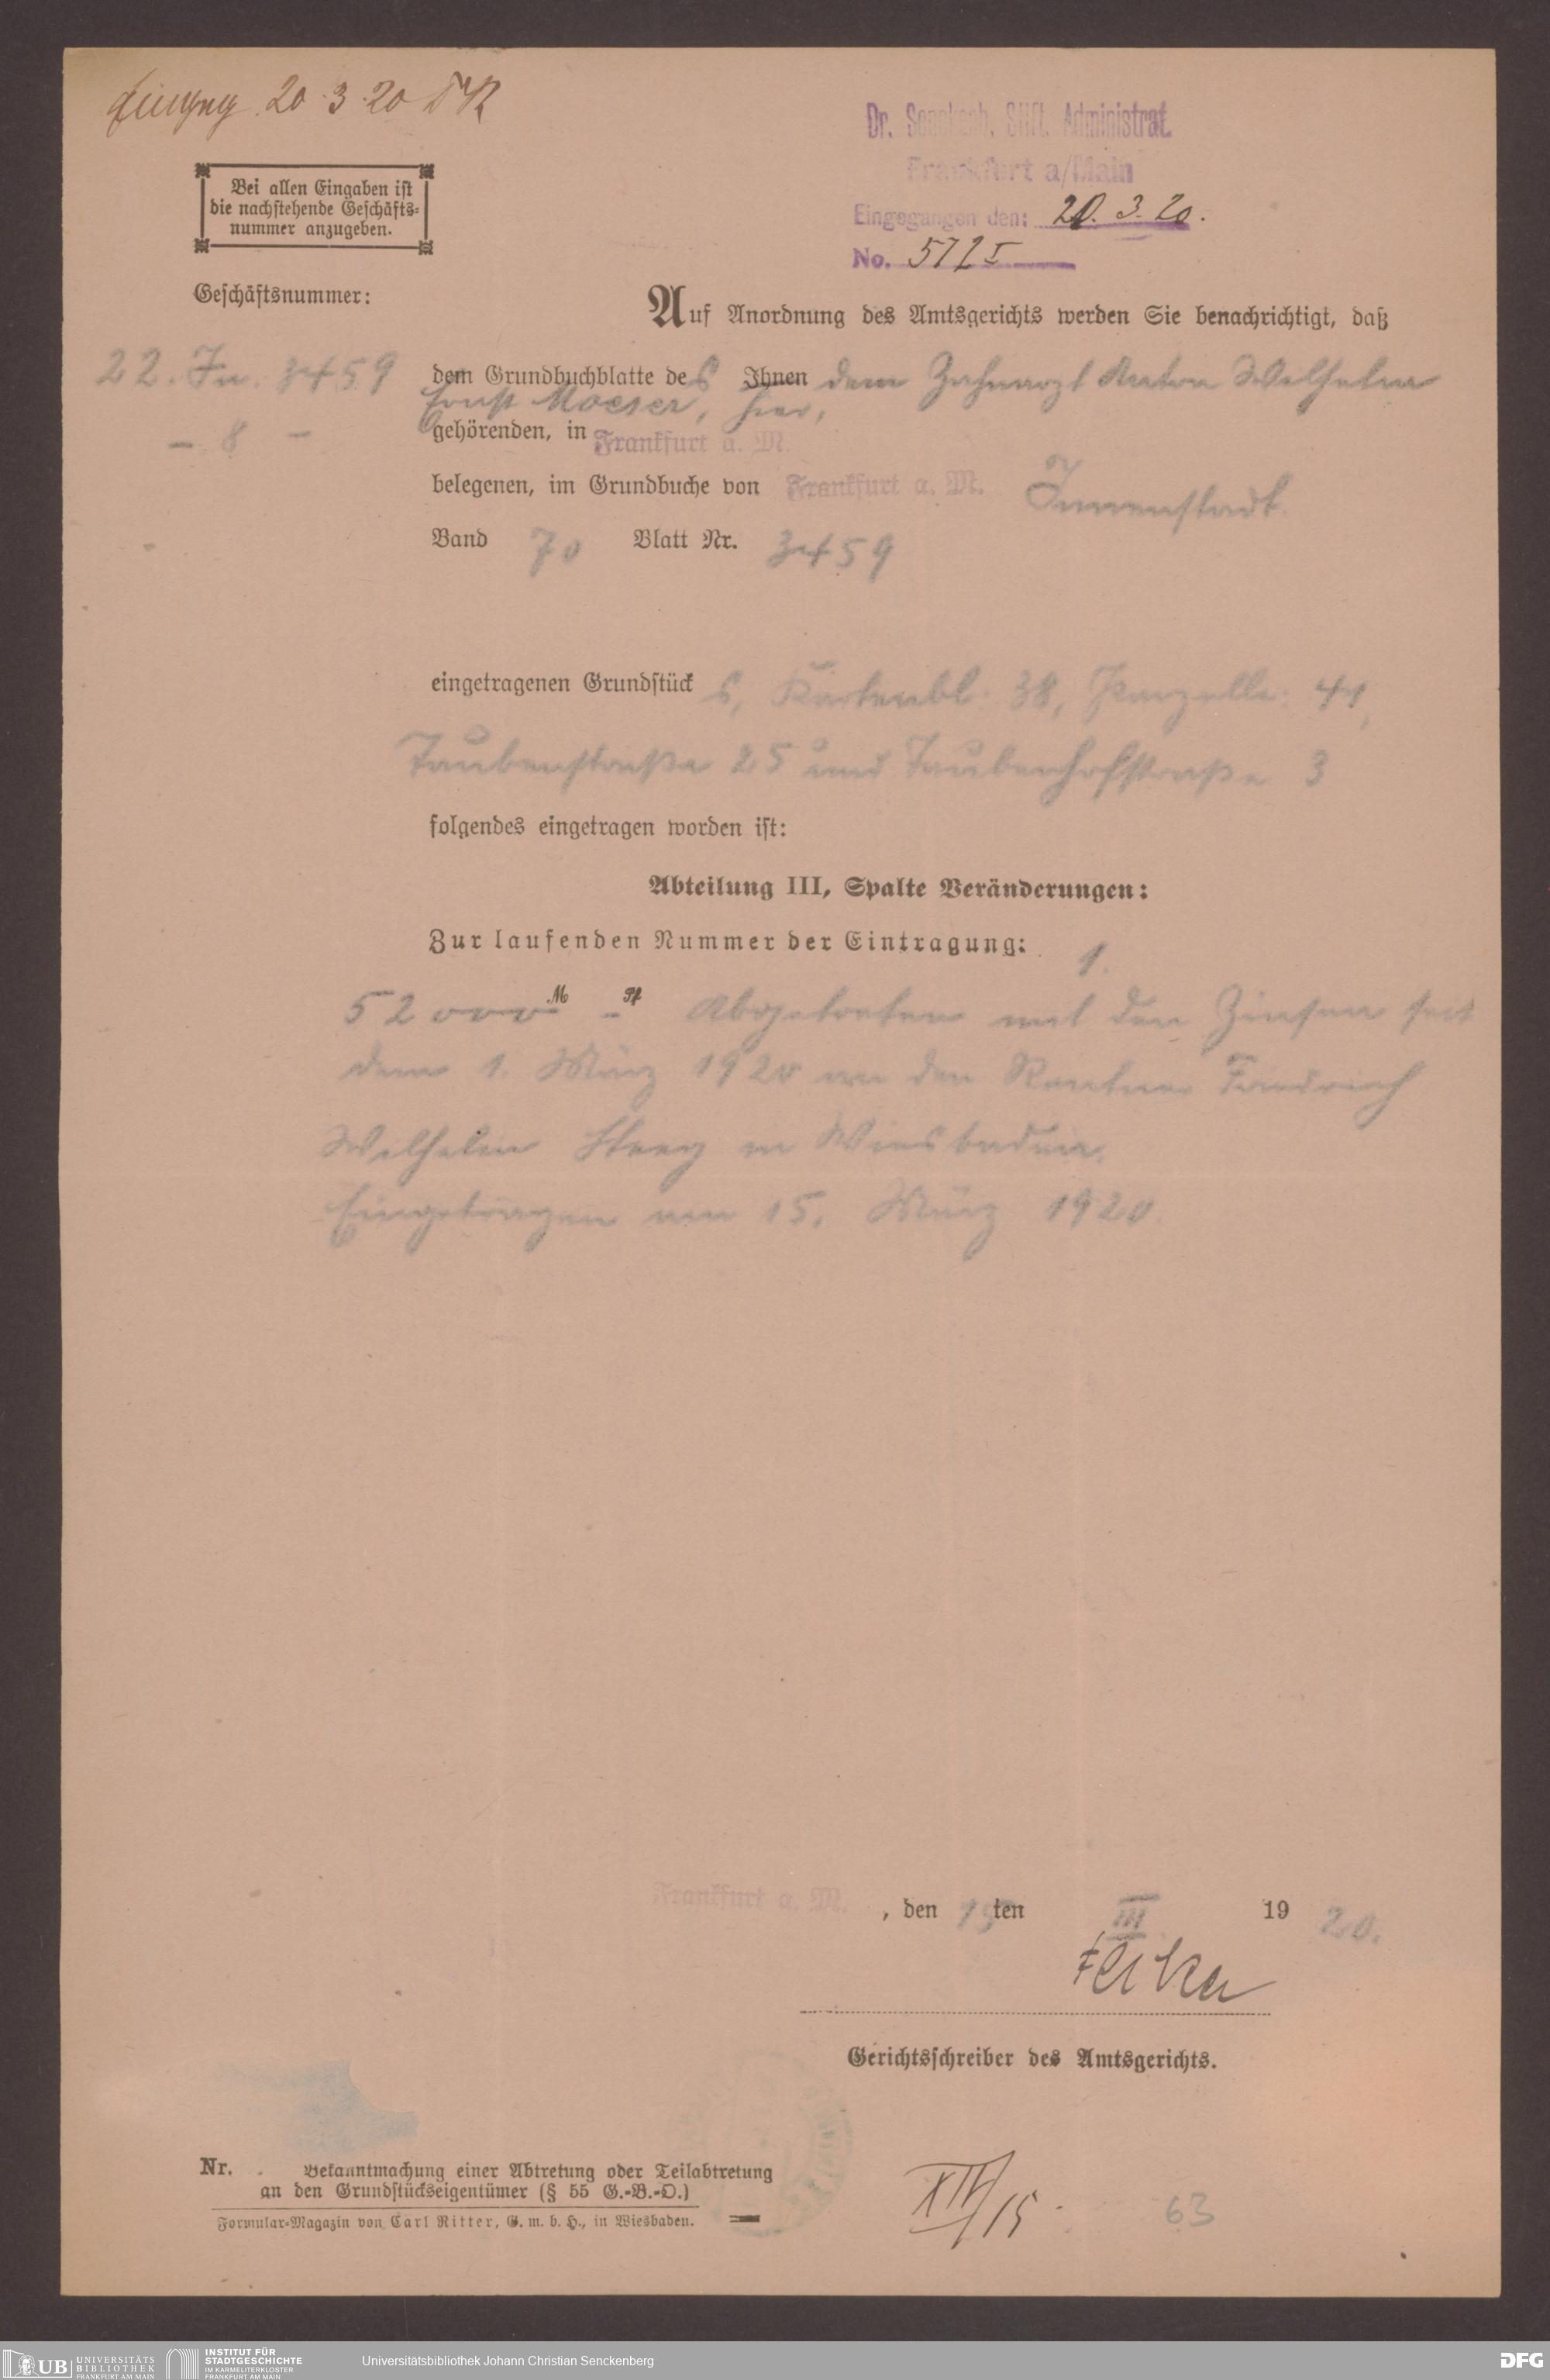 Eingang 20.3.20
Dr. Senckenb. Stift. Administrat.
Frankfurt a/Main
Eingegangen den: 20. 3. 20.
No. 572 I
Bei allen Eingaben ist
die nachstehende Geschäfts-
nummer anzugeben.
Geschäftsnummer:
22. In. 3459
- 8 -
Auf Anordnung des Amtsgerichts werden Sie benachrichtigt, daß
dem Grundbuchblatte des Ihnen dem Zahnarzt Anton Wilhelm
Ernst Moeser, hier,
gehörenden, in Frankfurt a. M.
belegenen, im Grundbuche von Frankfurt a. M. Innenstadt
Band 70 Blatt Nr. 3459
eingetragenen Grundstücks, Kartenbl. 38, Parzelle: 41,
Taubenstraße 25 und Taubenhofstraße 3
folgendes eingetragen worden ist:
Abteilung III, Spalte Veränderungen:
Zur laufenden Nummer der Eintragung: 1.
52000 M - Pf Abgetreten mit den Zinsen seit
dem 1. März 1920 an den Rentner Friedrich
Wilhelm in Wiesbaden.
Eingetragen am 15. März 1920.
Frankfurt a. M., den 15ten III 1920.
Gerichtsschreiber des Amtsgerichts.
Nr. Bekanntmachung einer Abtretung oder Teilabtretung
an den Grundstückseigentümer (§ 55 G.-B.-O.)
Formular-Magazin von Carl Ritter, G. m. b. H., in Wiesbaden.
63
UB UNIVERSITÄTS
BIBLIOTHEK
FRANKFURT AM MAIN
INSTITUT FÜR
STADTGESCHICHTE
IM KARMELITERKLOSTER
FRANKFURT AM MAIN
Universitätsbibliothek Johann Christian Senckenberg
DFG